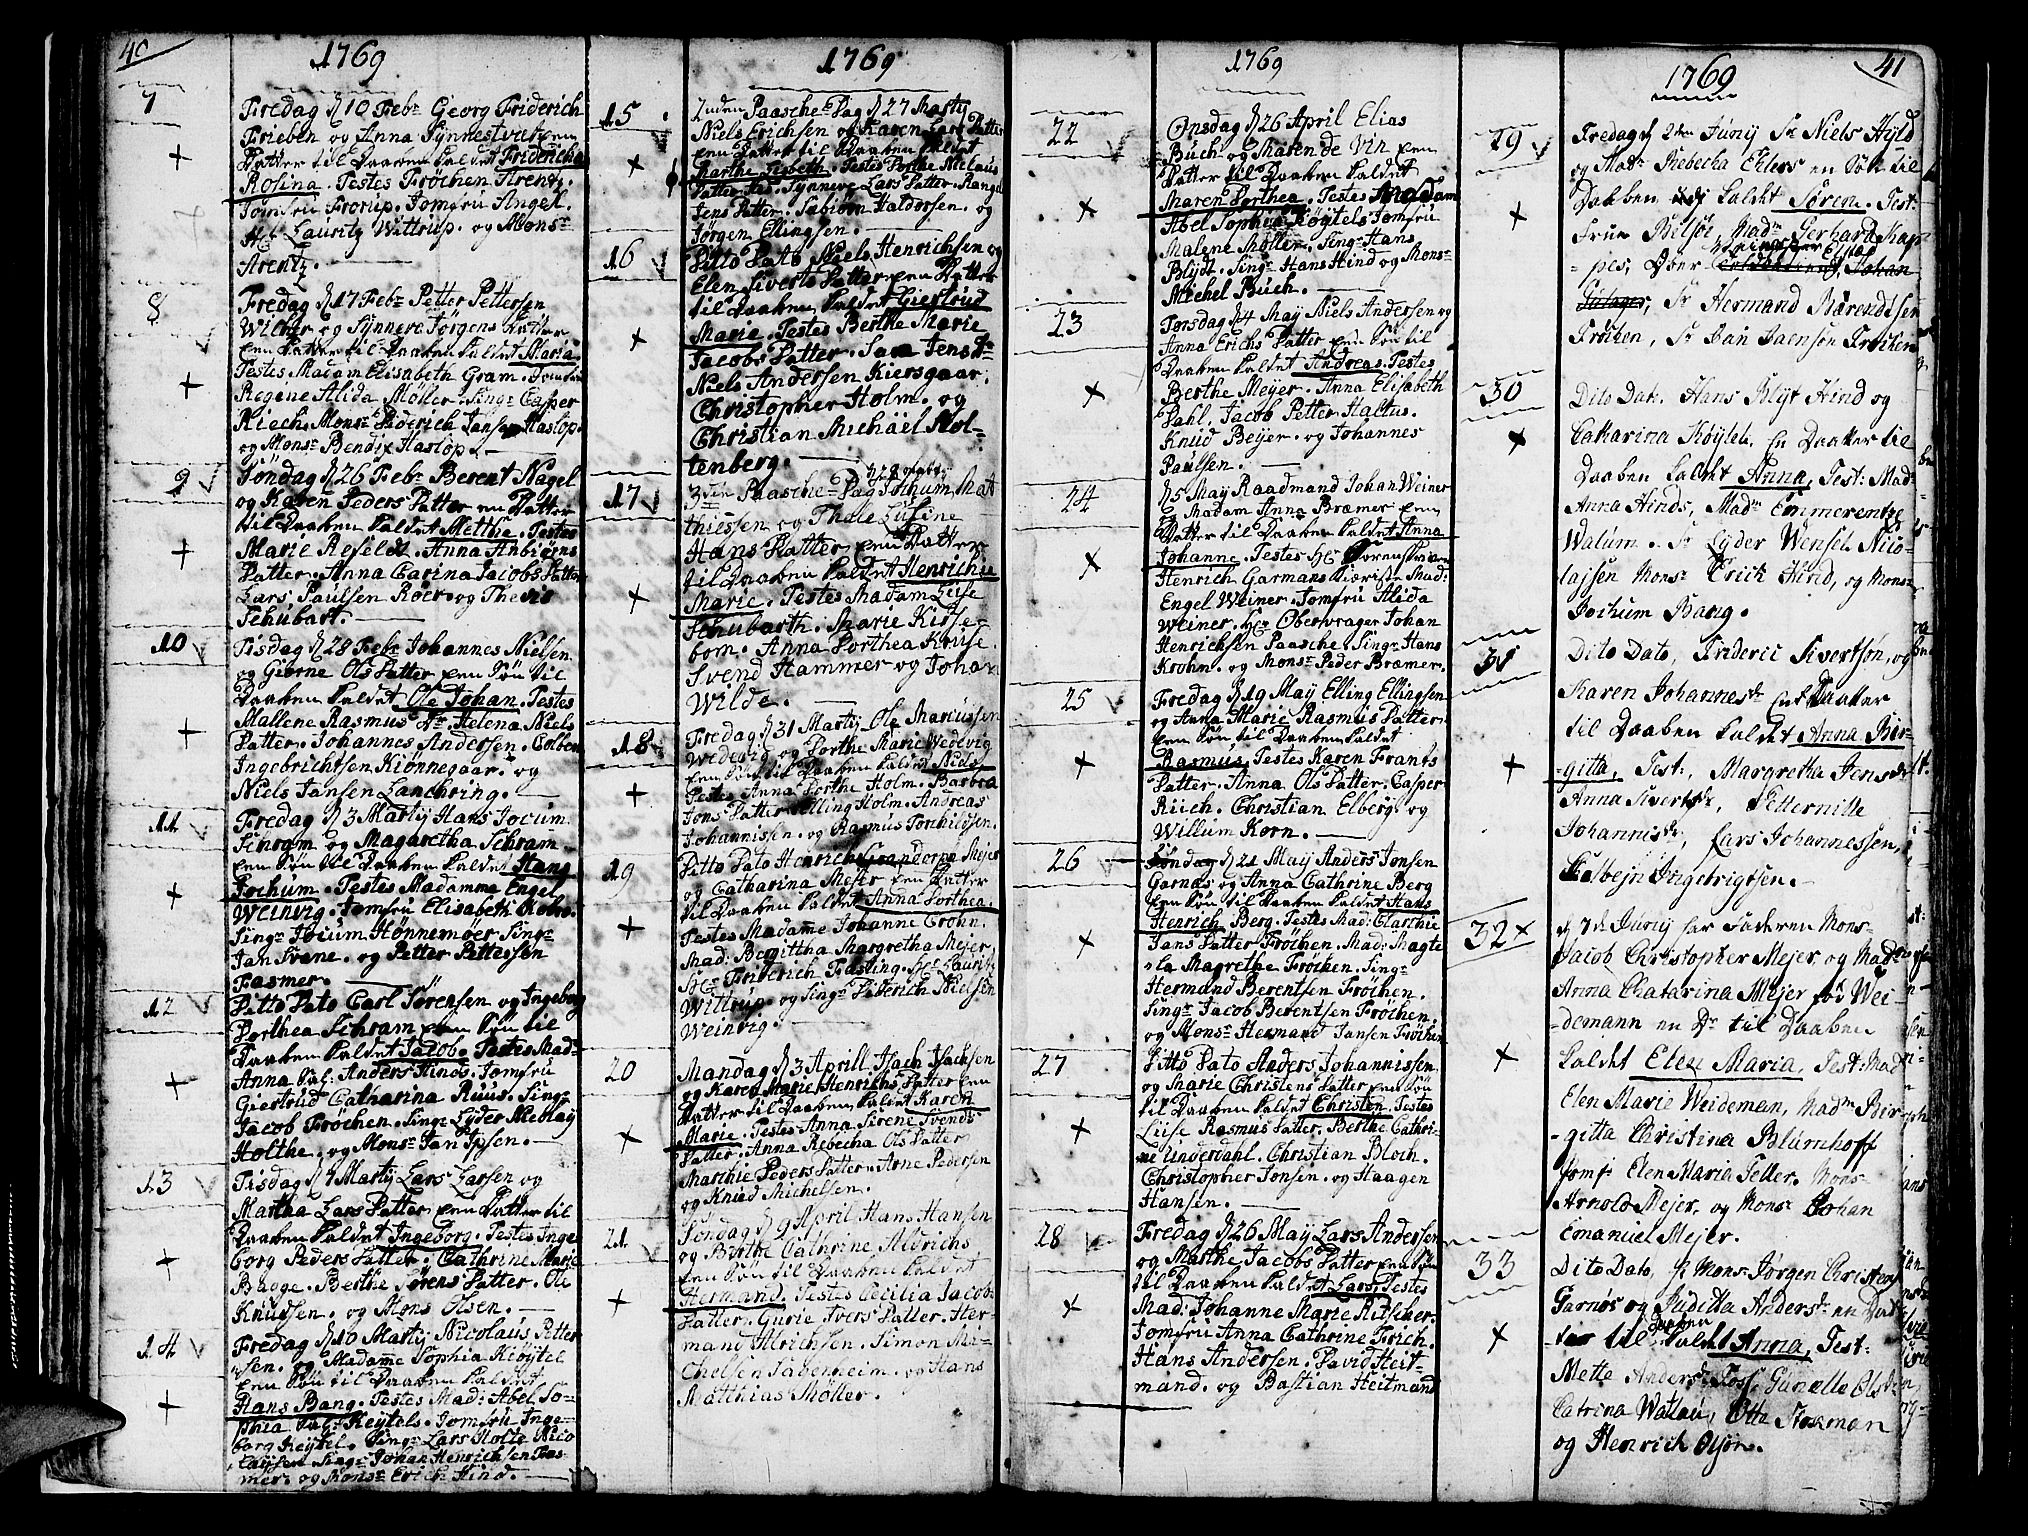 40
1769
7
Fredag d 10 Febr Georg Friderich
Frieben og Anna Synnestvat een
Datter til Daaben kaldet Fridericha
Rosina. Testes Frøchen Arentz.
Jomfru Frorup. Jomfru Angel.
Hr Lauritz Wittrup. og Mons
Arentz.
8
Fredag d 17 Febr Petter Pettersen
Wilcher og Synneve Jørgens Datter
een Datter til Daaben kaldet Maria
Testes Madam Elisabeth Gram. Jomfru
Regine Alida Møller. Singr Casper
Riech. Monsr Diderich Jansen Haslop.
og Monsr Bendix Haslop.
9
Søndag d 26 Febr Berent Nagel
og Karen Peders Datter en Datter
til Daaben kaldet Metthe. Testes
Marie Refeldt. Anna Anbiørns
Datter. Anna Carina Jacobs Datter
Lars Paulsen Roer. og Thevis
Schubart.
10
Tisdag d 28 Febr Johannes Nielsen
og Giørne Ols Datter een Søn til
Daaben kaldet Ole Johan. Testes
Mallene Rasmus Dr Helena Niels
Datter. Johannes Andersen. Colben
Ingebrichtsen Kiønnegaar. og
Niels Jansen Lanchring.
11
Fredag d 3 Martij Hans Jocum
Schram og Magaretha Schram
een Søn til Daaben kaldet Hans
Jochum. Testes Madamme Engel
Weinvig. Jomfru Elisabeth Kobro.
Singr Jocum Hønnemoer Singr
Jan Svane. og Petter Pettersen
Fasmer.
12
Ditto Dato Carl Sørensen og Ingeborg
Dorthea Schram een Søn til
Daaben kaldet Jacob. Testes Mad
Anna Sal: Anders Hinds. Jomfru
Giertrud Catharina Ruus. Singr
Jacob Frøchen. Singr Lyder Nicolay
Holthe. og Monsr Jan Ipsen.
13
Tisdag d 7 Martij Lars Larsen og
Martha Lars Datter een Datter til
Daaben kaldet Ingeborg. Testes Inge
borg Peders Datter. Cathrine Marie
Bagge. Berthe Sørens Datter. Ole
Knudsen. og Mons Olsen.
14
Fredag d 10 Martij Nicolaus Petter
sen. og Madamme Sophia Kiøytel
een Søn til Daaben kaldet
Hans Bang. Testes Mad: Abel So-
phia Sal: Keytels. Jomfru Inge-
borg Keytel. Singr Lars Holte Nico
laysen Singr Johan Henrichsen Fas-
mer. og Monsr Erich Hind.
1769
15
2nden Paasche-Dag d 27 Martij
Niels Erichsen og Karen Lars Datter
een Datter til Daaben kaldet
Marthe Lisbeth. Testes Dorthe Nielaus
Datter. Synneve Lars Datter. Ranga
Jens Datter. Sabiørn Haldorsen. og
Jørgen Ellingsen.
16
Ditto Dato Niels Henrichsen og
Elen Siverts Datter een Datter
til Daaben kaldet Giertrud
Marie. Testes Berthe Marie
Jacobs Datter. Sara Jens Dr
Niels Andersen Kiersgaar.
Christopher Holm. og
Christian Michael Hol-
tenberg.
17
3die Paasche-Dag d 28 Martij Jochum Mat
thiessen og Thale Lusine
Hans Datter een Datter
til Daaben kaldet Henrichie
Marie. Testes Madam Luise
Schubarth. Marie Kirse-
bom. Anna Dorthea Kruse.
Svend Hammer og Johan
Wilde.
18
Fredag d 31 Martij Ole Marcussen
Wedevig og Dorthe Marie Wedevig
een Søn til Daaben kaldet Niels
Testes Anna Dorthe Holm. Barbra
Jons Datter. Elling Holm. Andreas
Johannissen. og Rasmus Torchilsen.
19
Ditto Dato Henrich Meyer
og Catharina Meyer een Datter
til Daaben kaldet Anna Dorthea.
Testes Madamme Johanne Crohn.
Mad: Bergittha Margretha Mejer
Hr Friderich Fasting. Hr Lauritz
Wittrup. og Singr Diderich Nielsen
Weinvig.
20
Mandag d 3 Aprill Isach Isachsen
og Karen Marie Henrichs Datter een
Datter til Daaben kaldet Karen
Marie. Testes Anna Sirene Svends
Datter. Anna Rebecha Ols Datter
Marthe Peders Datter. Arne Pedersen
og Knud Michelsen.
21
Søndag d 9 April Hans Hansen
og Birthe Cathrine Aldrichs
een Søn til Daaben kaldet
Hermand. Testes Cecilia Jacob
Datter. Gurie Ivers Datter. Her-
mand Ulrichsen. Simon Ma-
chelsen Sadenheim. og Hans
Matthias Møller.
1769
22
Onsdag d 26 April Elias
Buch og Maren de Vin een
Datter til Daaben kaldet
Maren Dorthea. Testes Madam
Abel Sophia Køytels Jomfru
Malene Møller. Singr Hans
Blydt. Singr Hans Hind og Monsr
Michel Buch.
23
Torsdag d 4 May Niels Andersen og
Anna Erichs Datter een Søn til
Daaben kaldet Andreas. Testes
Berthe Meyer. Anna Elisabeth
Dahl. Jacob Petter Haltus.
Knud Beyer. og Johannes
Paulsen.
24
d 5 May Raadmand Johan Weiner
og Madam Anna Bræmer een
Datter til Daaben kaldet Anna
Johanne. Testes Hr Sorenskriver
Henrich Garmans Kiæriste Mad:
Engel Weiner. Jomfru Alida
Weiner. Hr Obervrager Johan
Henrichsen Paasche. Singr Hans
Krohn. og Monsr Peder Bræmer.
25
Fredag d 19 May Elling Ellingsen
og Anna Marie Rasmus Datter
een Søn til Daaben kaldet
Rasmus. Testes Karen Frants
Datter. Anna Ols Datter. Casper
Riich. Christian Elberg. og
Willum Korn.
26
Søndag d 21 May Anders Jonsen
Garnæs og Anna Cathrine Berg
een Søn til Daaben kaldet Hans
Henrich Berg. Testes Mad: Clarthie
Jans Datter Frøchen. Mad: Magte
la Magrethe Frøchen. Singr
Hermand Berentsen Frøchen.
Singr Jacob Berentsen Frøchen.
og Monsr Hermand Jansen Frøchen
27
Ditto Dato Anders Johannissen
og Marie Christens Datter een Søn
til Daaben kaldet Christen. Testes
Luise Rasmus Datter. Berthe Cathri-
ne Underdahl. Christian Bloch.
Christopher Jonsen. og Haagen
Hansen.
28
Fredag d 26 May Lars Andersen
og Marthe Jacobs Datter een Søn
til Daaben kaldet Lars. Testes
Mad: Johanne Marie Ritscher.
Jomfru Anna Cathrine Irich.
Hans Andersen. David Heit-
mand. og Bastian Heitmand
1769
41
29
Fredag d 2den Junij Sr Niels Hyld
og Madm Rebecha Ehlers en Søn til
Daaben kaldt Søren. Test:
Frue Bilsøe, Madm Gerhard Kap-
pes, Sr Hermand Bærendtsen
Frøchen, Sr Jan Jaensøn Frøchen
30
Dito Dato. Hans Blyt Hind og
Catharina Køytel. En Daatter til
Daaben kaldt Anna, Test: Mad
Anna Hinds, Madm Emmerentze
Walum. Sr Lyder Wensel Nico-
lajsen Monsr Erich Hind, og Monsr
Jochum Bang.
31
Dito Dato, Frideric Sivertsøn, og
Karen Johannesdr En Daatter
til Daaben kaldet Anna Bir-
gitta, Test:, Margretha Jensdr
Anna Sivertsdr, Petternille
Johannisdr, Lars Johannessen,
Kolbejn Ingebrigtsen.
32
d 7de Junij har Faderen Mons
Jacob Christopher Mejer og Madm
Anna Catarina Mejer fød Wei-
demann en Dr til Daaben
kaldet Elen Maria, Test: Mad
Elen Marie Weideman, Madm Bir-
gitta Christina Blumhoff
Jomf Elen Maria Teller. Mons
Arnold Mejer, og Monsr Johan
Emanuel Mejer.
33
Dito Dato, Mons Jørgen Christens
Garnøs og Juditta Andersdr en Dat
ter til Daaben kaldt Anna, Test:
Mette Andersdr Foss, Gunelle Olsdr
Catrina Watlau, Otte Stokman
og Henrich Olsøn.